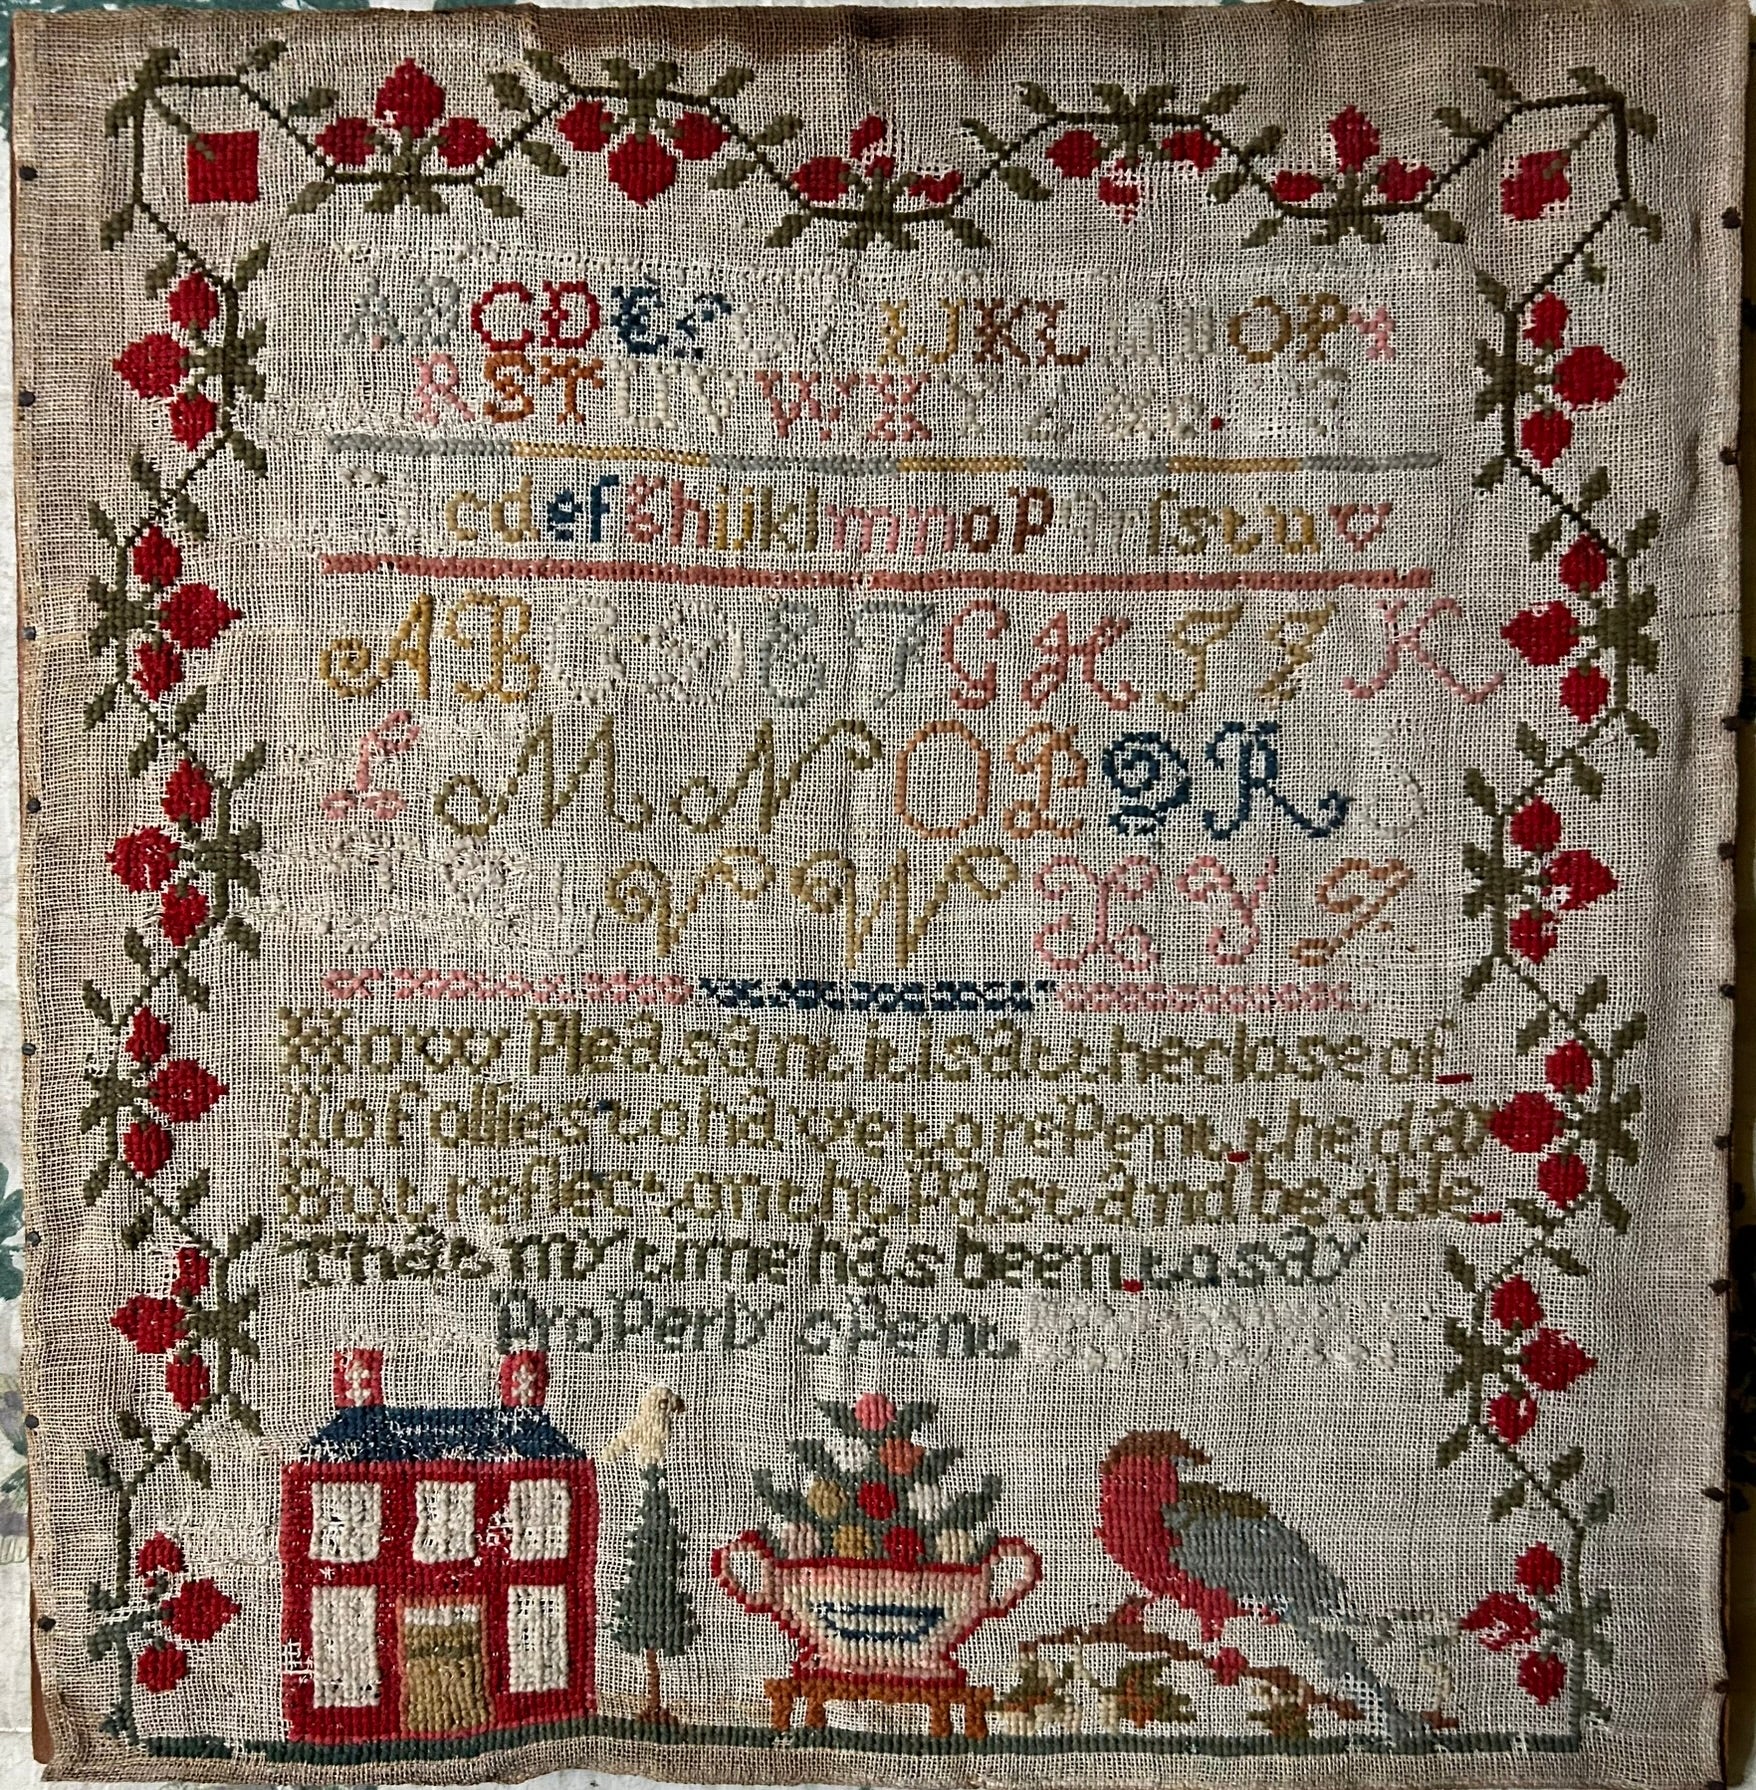 A B C D E F G H I J K L M N O P Q
R S T U V W X Y Z &c.
c d e f g h i j k l m n o p q r ſ s t u v
A B C D E F G H I J K
L M N O P Q R S
T U V W X Y Z
How Pleasant it is at the close of
No Follies to have to rePent the day
But reflect on the Past And be able
That my time has been to say
ProPerly sPent